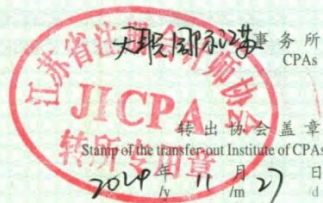 天职国际江苏事务所
CPAs
江苏省注册会计师协会
JICPA
转所专用章
转出协会盖章
Stamp of the transfer-out Institute of CPAs
2024年11月27日
/y /m /d